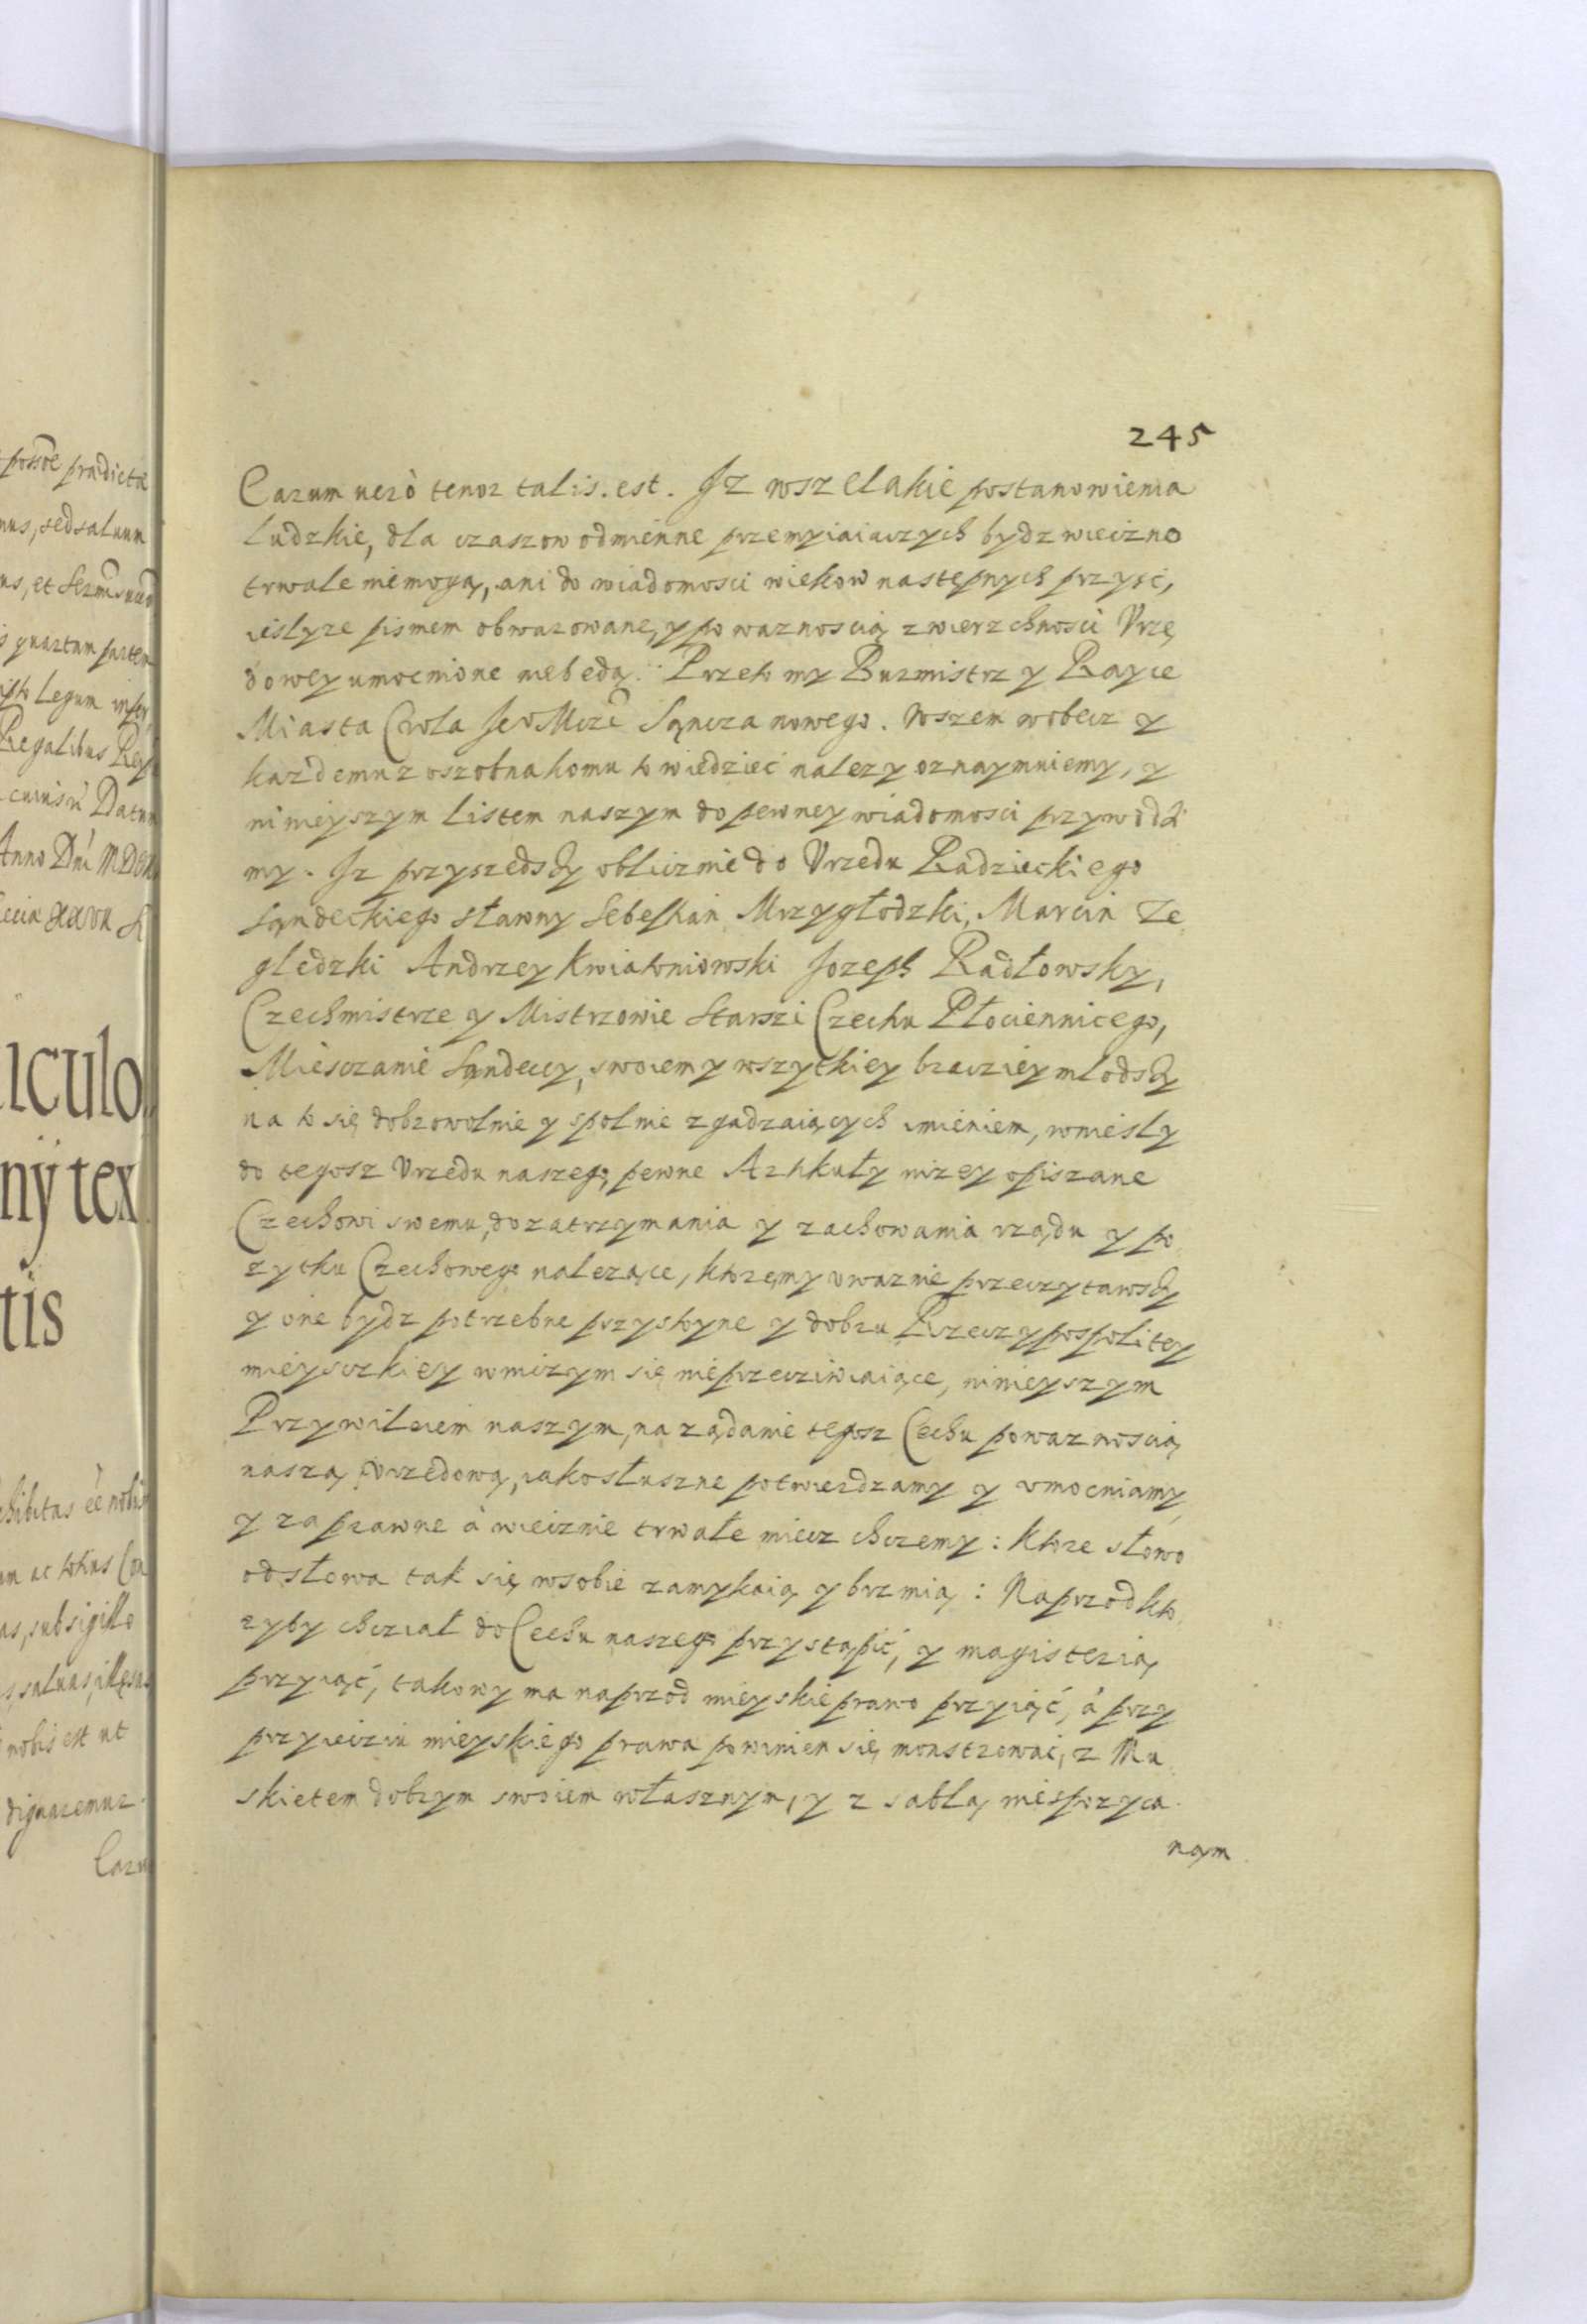 245
Earum uerò tenor talis. est. Iz wszelakie postanowienia
ludzkie, dla czaszow odmienne przemyiaiaczych bydz wieczno
trwale niemogą, ani do wiadomosci wiekow nastepnych przysć,
iesly ze pismem obwarowane, y powaznoscią zwierzchnosci Vrzę
dowey umocnione niebedą. Przeto my Burmistrz y Rayce
Miasta Crola Jeo Mczi Sącza nowego. Wszem wobecz y
kazdemu z oszobna komu to wiedzieć nalezy oznaymuiemy, y
ninieyszym listem naszym do pewney wiadomosci przywodzi
my. Iz przyszedszy oblicznie do Vrzedu Radzieckiego
Sąndeckiego sławny Sebestian Mrzygłodzki, Marcin Ze
gledzki Andrzey Kwiatoniowski Jozeph Radłowsky,
Czechmistrze y Mistrzowie Starszi Czechu Płocienniceg̃o,
Miesczanie Sąndeccy, swoiem y wszytkiey bracziey mlodszy
na to się dobrowolnie y spolnie zgadzaiących imieniem, wniesly
do tegosz Vrzedu naszego, pewne Artikuły nizey opiszane
Czechowi swemu, do zatrzymania y zachowania rządu y po
zytku Czechowego nalezące, ktorę my uwaznie przeczytawszy
y one bydz potrzebne przystoyne y dobru Rzeczypospolitey
mieysczkiey wniczym się nieprzecziwiaiące, ninieyszym
Przywileiem naszym, na ządanie tegosz Cechu powaznoscią
naszą Vrzedową, iako słuszne potwierdzamy y vmocniamy
y za prawne à wiecznie trwałe miecz chczemy: Ktore słowo
od słowa tak się wsobie zamykaią y brzmią: Naprzod kto
ryby chcział do Cechu naszego przystąpić, y magisterią
przyiąć, takowy ma naprzod mieyskie prawo przyiąć, à przy
przyieciu mieyskiego prawa powinien się monstrować, z Mu
skietem dobrym swoiem własznym, y z sablą niespozycza
nym